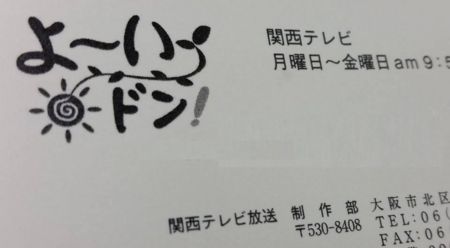 よ〜い
ドン!
関西テレビ
月曜日〜金曜日am9:5
関西テレビ放送 制作部 大阪市北区
〒530-8408 TEL:06(
FAX:06